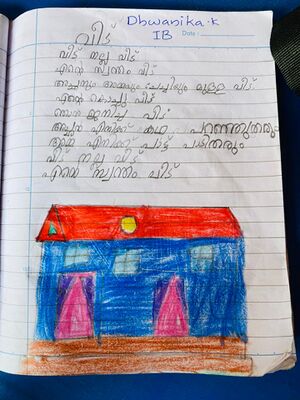 Dhwanika.K
IB
Date:
വീട്
വീട് നല്ല വീട്
എന്റെ സ്വന്തം വീട്
അച്ഛനും അമ്മയും ചേച്ചിയും മുള്ള വീട്
എന്റെ കൊച്ചു വീട്
ഞാൻ ജനിച്ച വീട്
അച്ഛൻ എനിക്ക് കഥ പറഞ്ഞുതരും
അമ്മ എനിക്ക് പാട്ട് പാടിതരും
വീട് നല്ല വീട്
എന്റെ സ്വന്തം വീട്